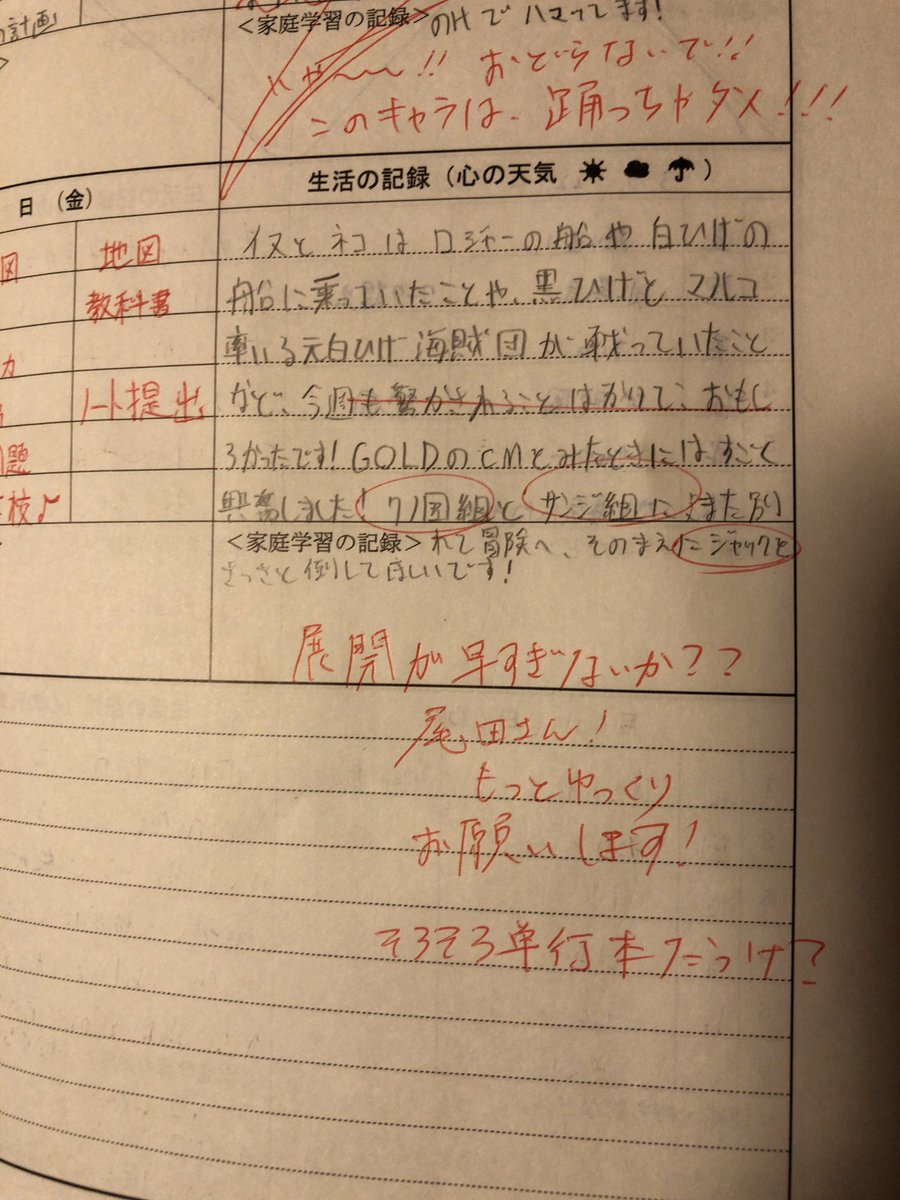 計画
<家庭学習の記録>のHでハマってます!
いや〜〜!! おどらないで!!
このキャラは、踊っちゃダメ!!!
日 (金)
生活の記録 (心の天気 ☀ ☁ ☂)
図
地図
教科書
ノート提出
題
校♪
イヌとネコはロジャーの船や白ひげの
船に乗っていたことや、黒ひげとマルコ
率いる元白ひげ海賊団が戦っていたこと
など、今週も驚かされることばかりで、おもし
ろかったです!GOLDのCMとみたときにはすごく
興奮しました!ワノ国組と、サンジ組に、また別
<家庭学習の記録>れて冒険へ、そのまえにジャックを
さっさと倒してほしいです!
展開が早すぎないか??
尾田さん!
もっとゆっくり
お願いします!
そろそろ単行本だっけ?